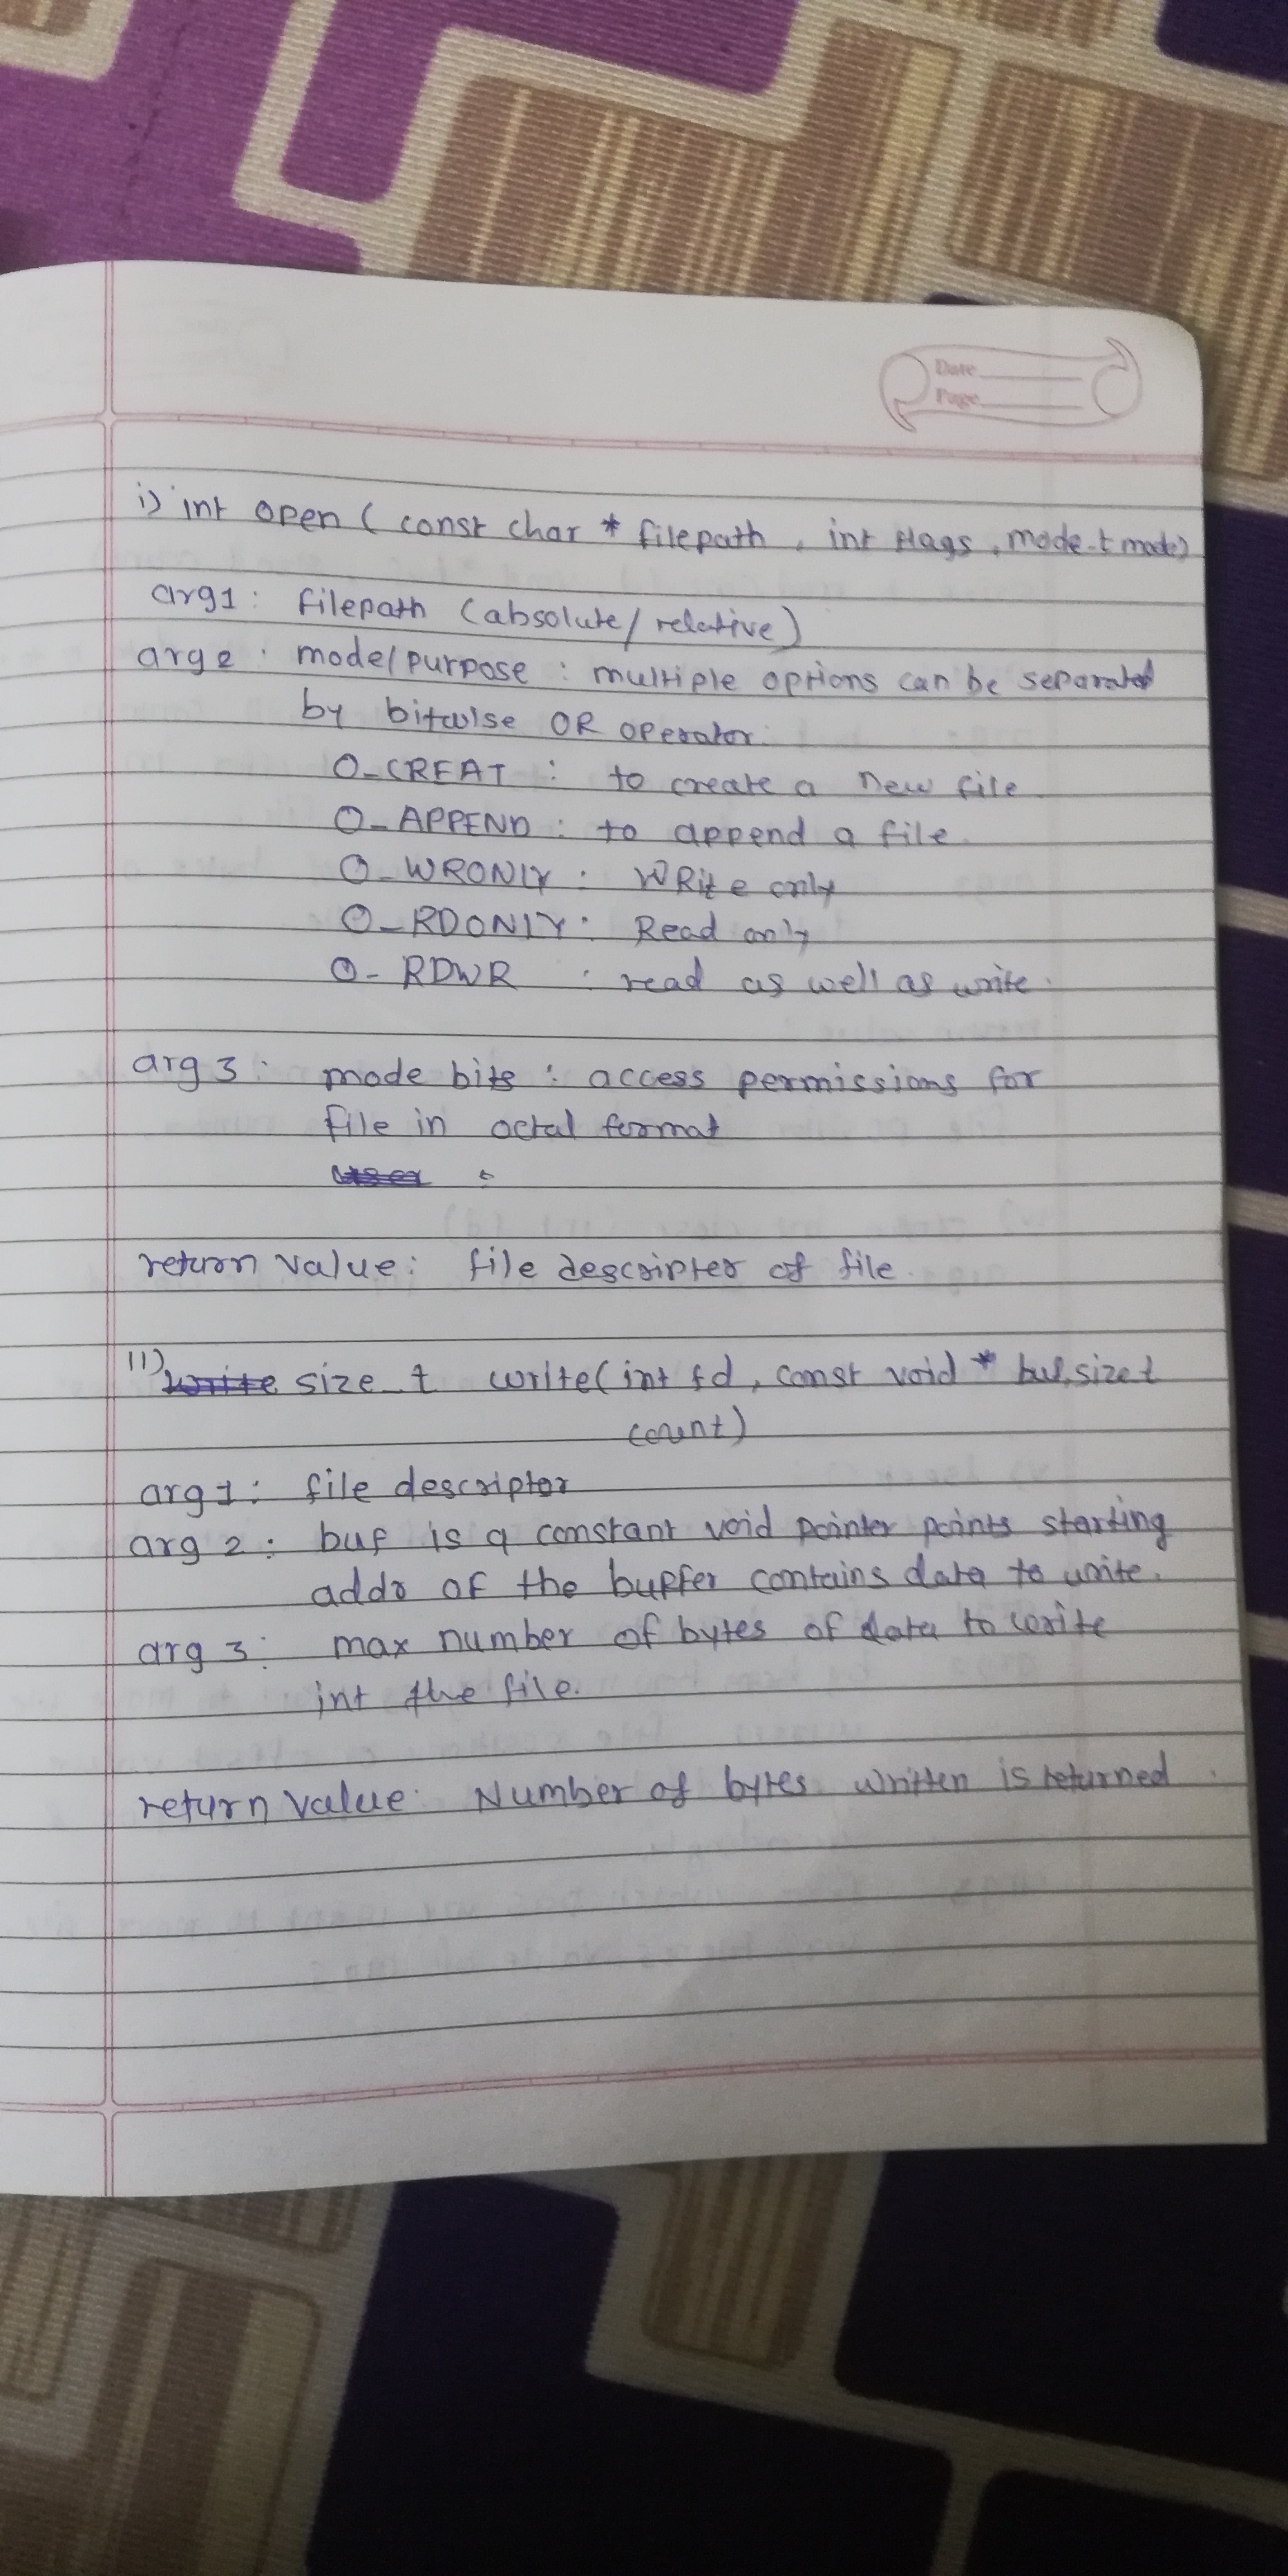 Date
Page
i) int open ( const char * filepath , int flags , mode_t mode)
arg1: filepath (absolute/relative)
arg2 : mode/purpose : multiple options can be separated
by bitwise OR operator.
O_CREAT : to create a new file
O_APPEND : to append a file.
O_WRONLY : WRite only
O_RDONLY : Read only
O_RDWR : read as well as write.
arg 3 : mode bits : access permissions for
file in octal format
:
return value : file descripter of file.
11) size_t write(int fd , const void * buf, size_t
count)
arg 1 : file descriptor
arg 2 : buf is a constant void pointer points starting
addr of the buffer contains data to write.
arg 3 : max number of bytes of data to write
int the file.
return value : Number of bytes written is returned.